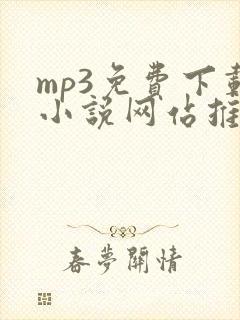 mp3免費下載
小說网佔推
春夢關情